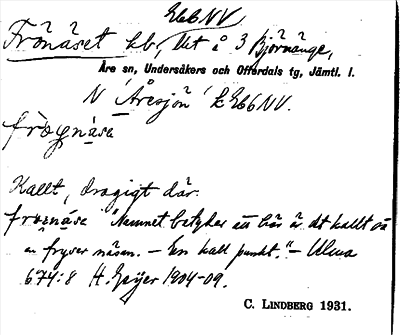 Eb6NV
Frönäset kb, Ut å 3 Björnänge,
Åre sn, Undersåkers och Offerdals tg, Jämtl. l.
N Åresjön k Eb6NV.
Kallt, dragigt där.
"Namnet betyder att här är det kallt så
en fryser näsan. – En kall punkt." – Ulma
674:8 H. Geijer 1904-09.
C. LINDBERG 1931.